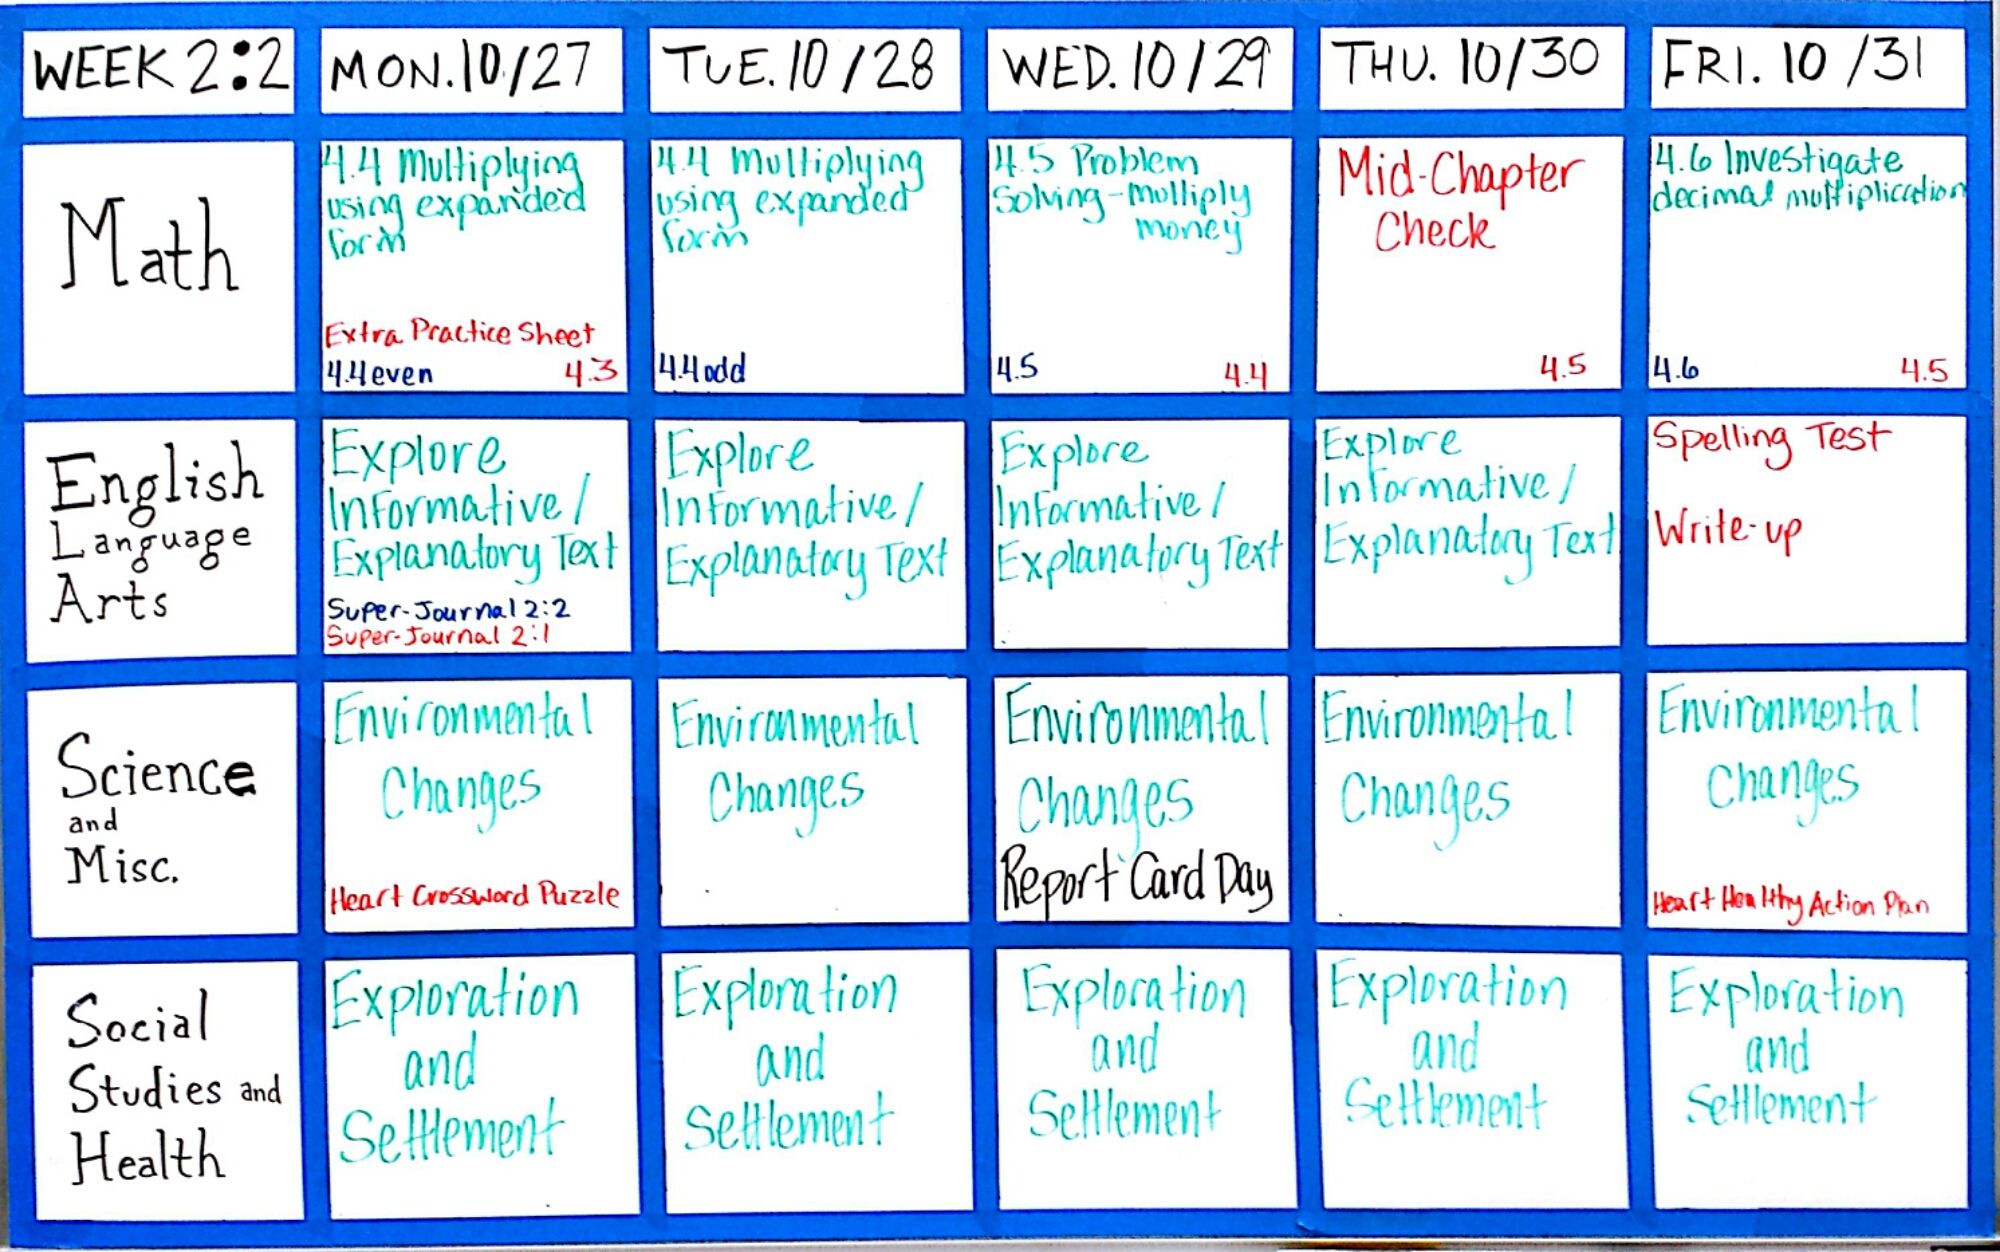 WEEK 2:2
MON. 10/27
TUE. 10/28
WED. 10/29
THU. 10/30
FRI. 10/31
Math
4.4 Multiplying
using expanded
form
Extra Practice Sheet
4.4 even 4.3
4.4 Multiplying
using expanded
form
4.4 odd
4.5 Problem
Solving - multiply
money
4.5 4.4
Mid-Chapter
Check
4.5
4.6 Investigate
decimal multiplication
4.6 4.5
English
Language
Arts
Explore
Informative/
Explanatory Text
Super-Journal 2:2
Super-Journal 2:1
Explore
Informative/
Explanatory Text
Explore
Informative/
Explanatory Text
Explore
Informative/
Explanatory Text
Spelling Test
Write-up
Science
and
Misc.
Environmental
Changes
Heart Crossword Puzzle
Environmental
Changes
Environmental
Changes
Report Card Day
Environmental
Changes
Environmental
Changes
Heart Healthy Action Plan
Social
Studies and
Health
Exploration
and
Settlement
Exploration
and
Settlement
Exploration
and
Settlement
Exploration
and
Settlement
Exploration
and
Settlement